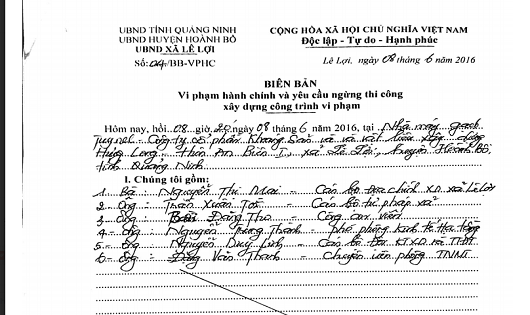 UBND TỈNH QUẢNG NINH
UBND HUYỆN HOÀNH BỒ
UBND XÃ LÊ LỢI
Số: 04/BB-VPHC
CỘNG HÒA XÃ HỘI CHỦ NGHĨA VIỆT NAM
Độc lập - Tự do - Hạnh phúc
Lê Lợi, ngày 08 tháng 6 năm 2016
BIÊN BẢN
Vi phạm hành chính và yêu cầu ngừng thi công
xây dựng công trình vi phạm
Hôm nay, hồi 08 giờ 20 ngày 08 tháng 6 năm 2016, tại Nhà máy gạch
Tuynel - Công ty cổ phần Khoáng Sản và vật liệu xây dựng
Hưng Long - Thôn An Biên I, xã Lê Lợi, huyện Hoành Bồ
tỉnh Quảng Ninh
I. Chúng tôi gồm:
1 Bà: Nguyễn Thị Mai - Cán bộ Địa chính XD xã Lê Lợi
2 - Ông: Trần Xuân - Cán bộ tư pháp xã
3 - Ông: Đặng Thọ - Công an viên
4 - Ông: Nguyễn Trung Thành - phó phòng kinh tế Hạ tầng
5 - Ông: Nguyễn Duy Linh - Cán bộ
6 - Ông: Đặng Văn Thanh - Chuyên viên phòng TNMT